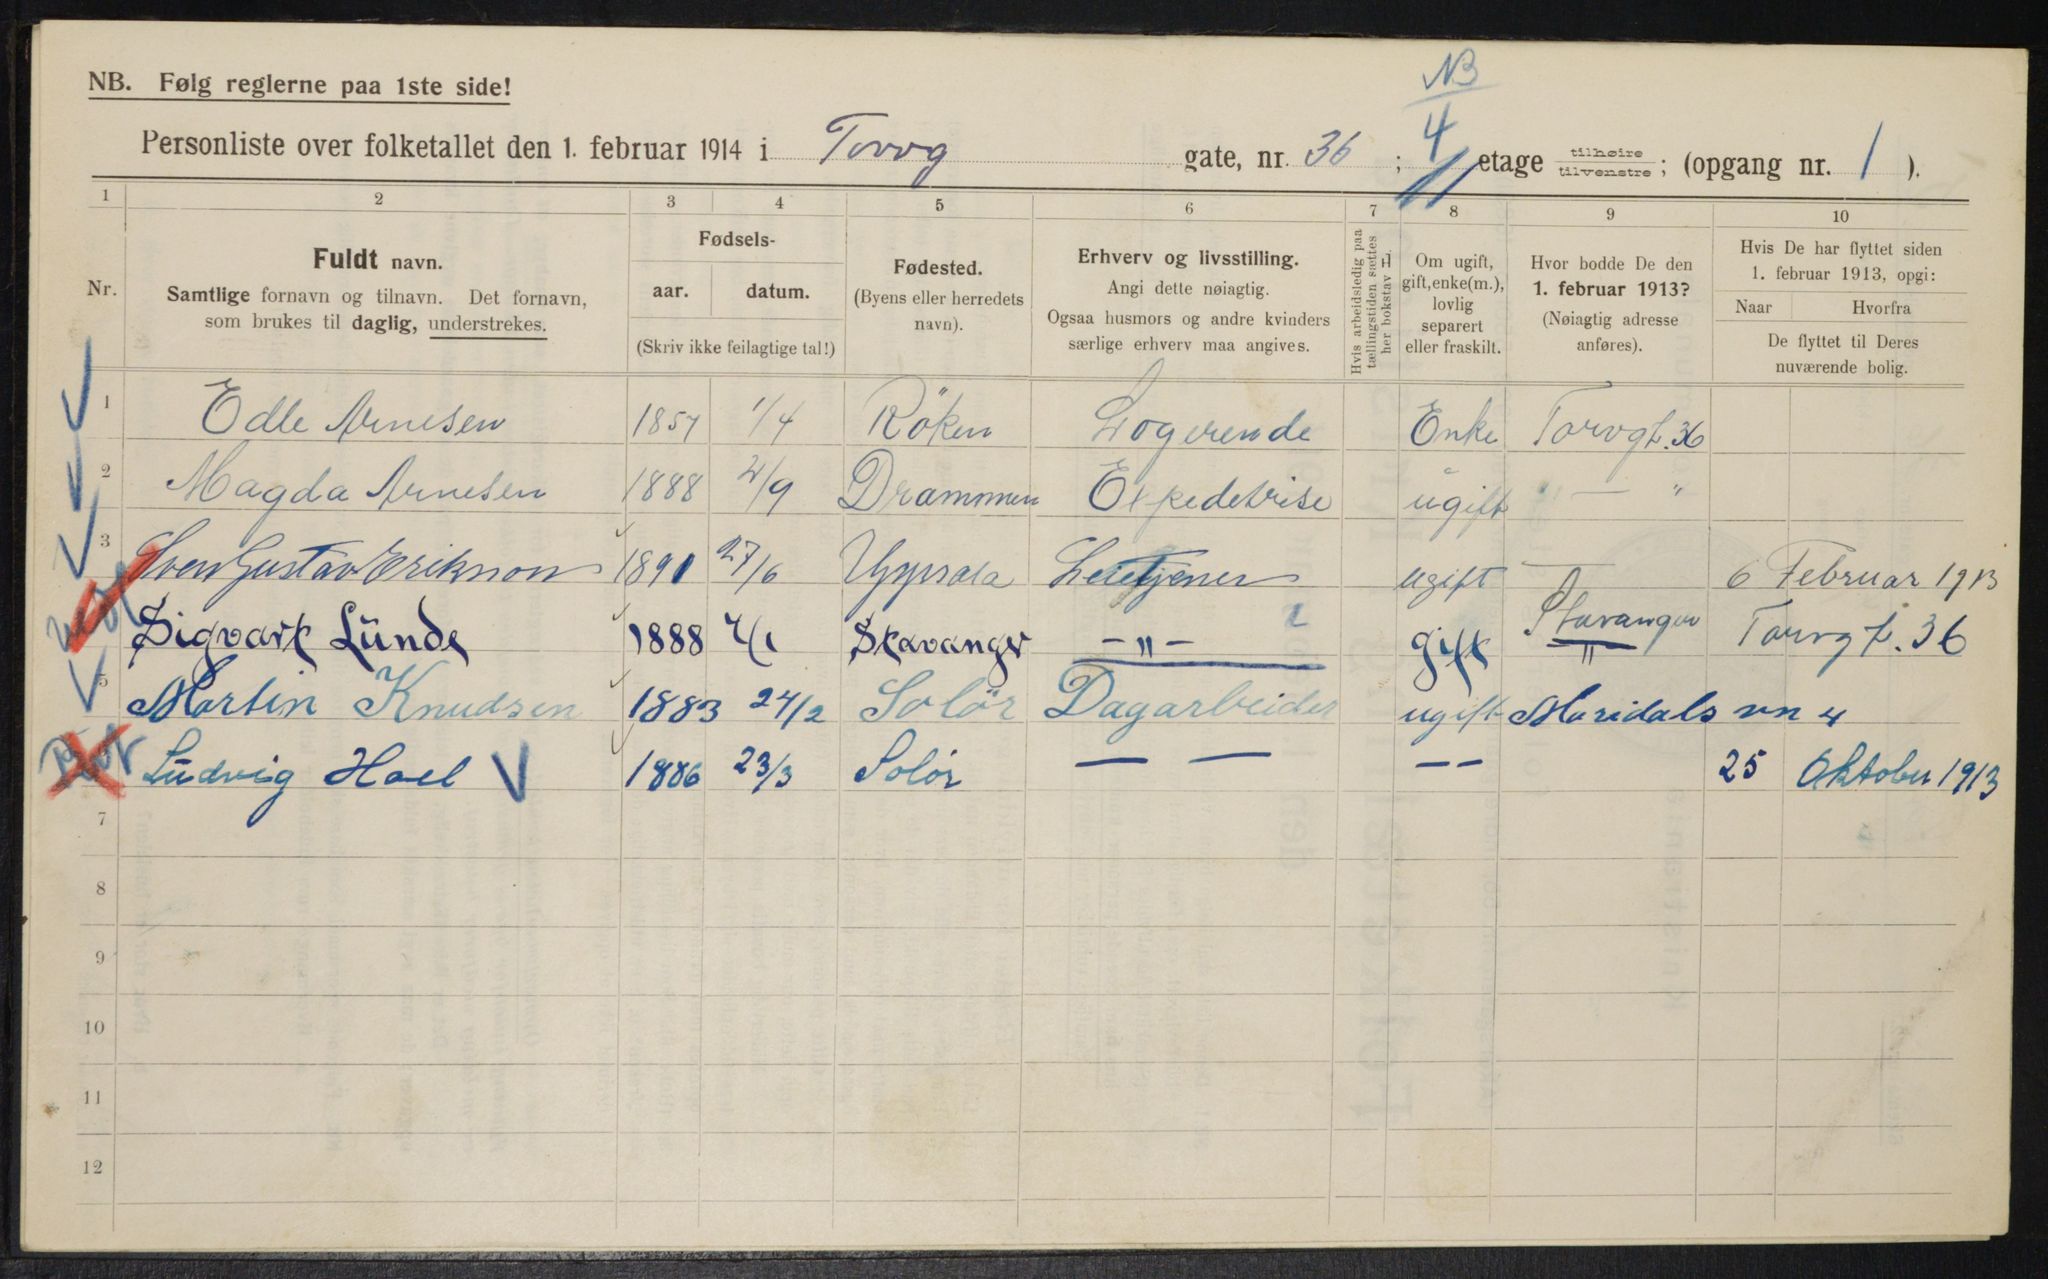 NB. Følg reglerne paa 1ste side!
NB
4
Personliste over folketallet den 1. februar 1914 i Torvg gate, nr. 36 ; etage tilhøire tilvenstre ; (opgang nr. 1 ).
1 2 3 4 5 6 7 8 9 10
Nr.
Fuldt navn.
Samtlige fornavn og tilnavn. Det fornavn,
som brukes til daglig, understrekes.
Fødsels-
aar. datum.
(Skriv ikke feilagtige tal!)
Fødested.
(Byens eller herredets
navn).
Erhverv og livsstilling.
Angi dette nøiagtig.
Ogsaa husmors og andre kvinders
særlige erhverv maa angives.
Hvis arbeidsledig paa
tællingstiden sættes
her bokstav L.
Om ugift,
gift, enke(m.),
lovlig
separert
eller fraskilt.
Hvor bodde De den
1. februar 1913?
(Nøiagtig adresse
anføres).
Hvis De har flyttet siden
1. februar 1913, opgi:
Naar Hvorfra
De flyttet til Deres
nuværende bolig.
1 Edle Arnesen 1857 1/4 Röken Logerende Enke Torvgt. 36
2 Magda Arnesen 1888 2/9 Drammen Expedetrise ugift " — "
3 Sven Gustav Erikson 1891 27/6 Uppsala ugift 6 Februar 1913
Sigvart Lünde 1888 Stavanger — " — gift Stavanger " Torvgt. 36
5 Martin Knudsen 1883 24/2 Solör Dagarbeider ugift Maridals vn 4
Ludvig Hoel 1886 23/3 Solör — — — — 25 Oktober 1913
7
8
9
10
11
12